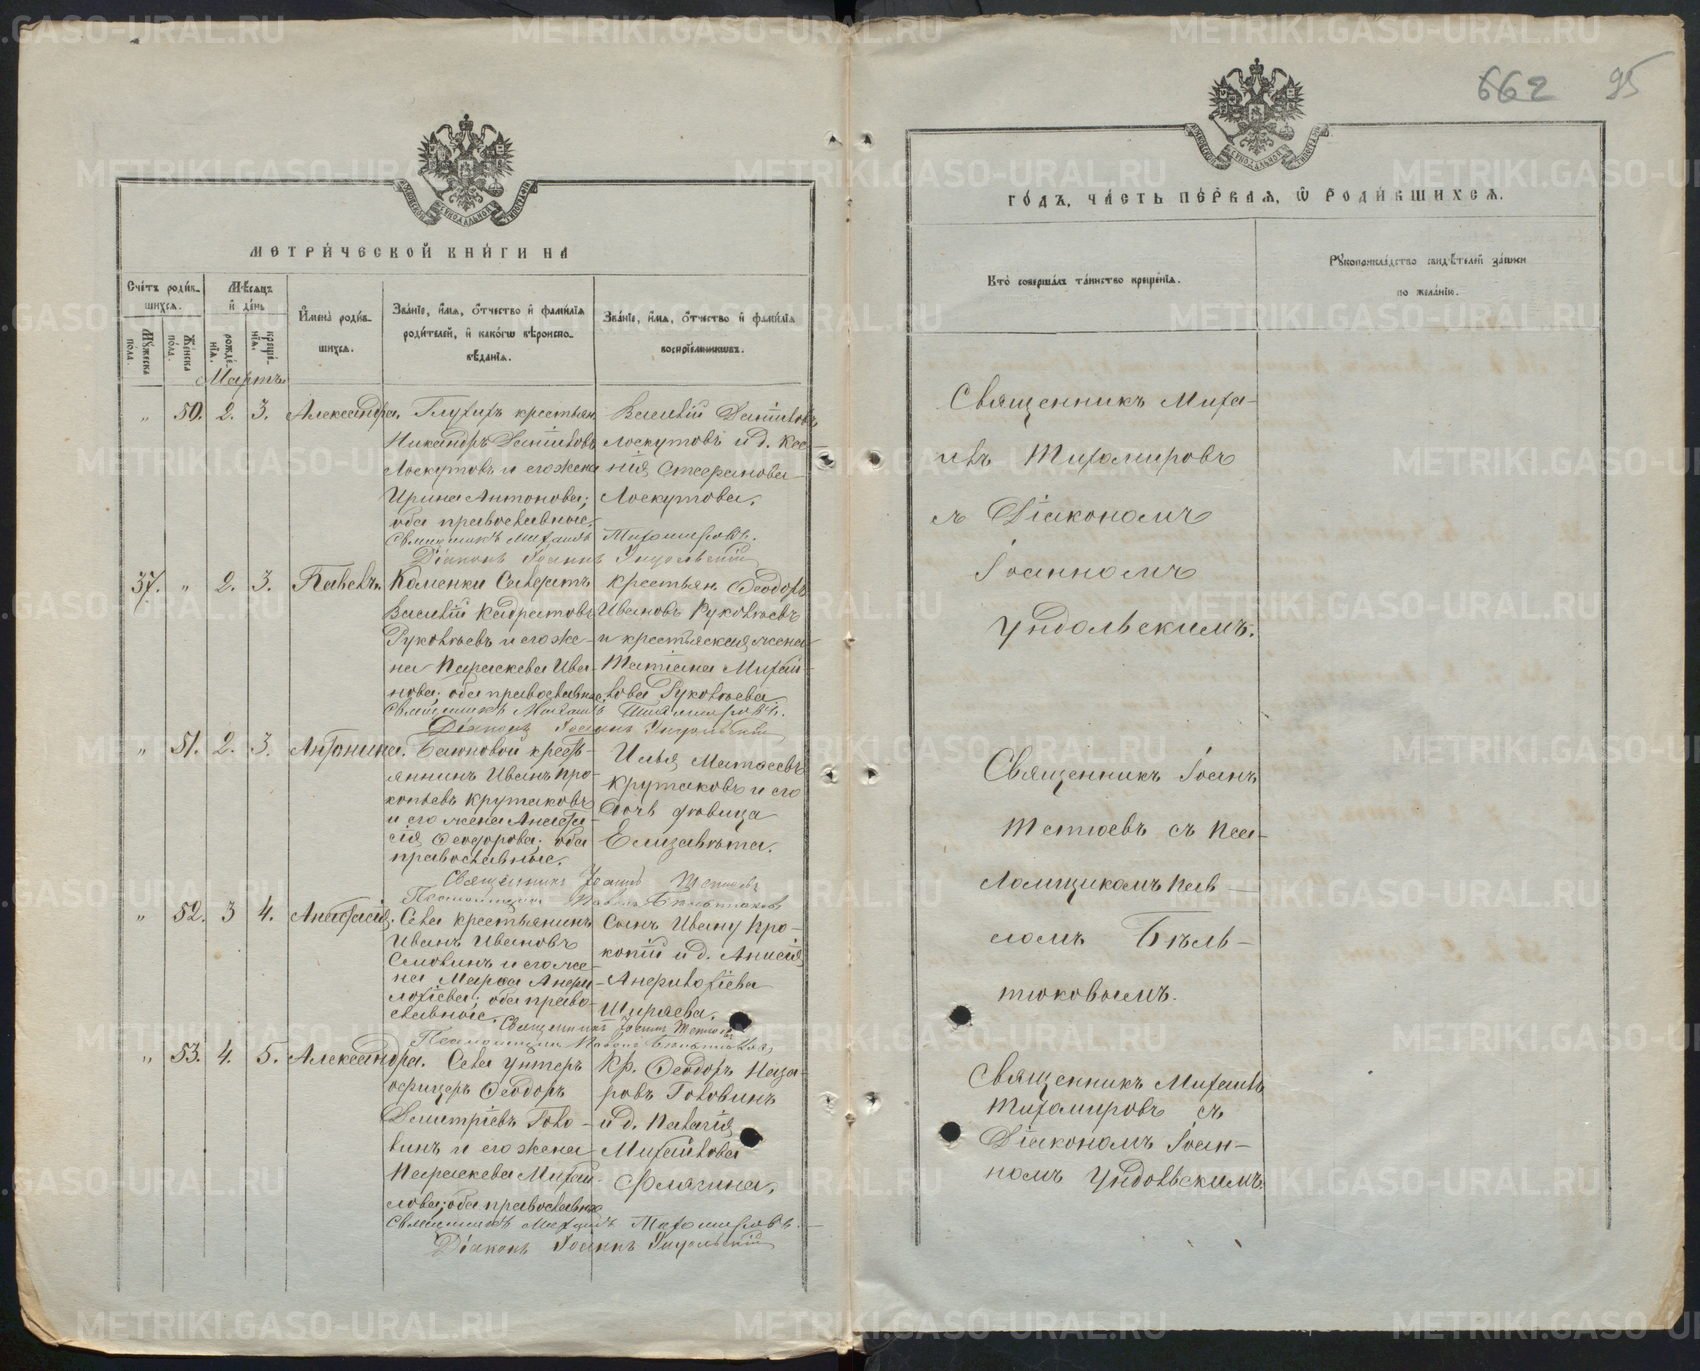 МЕТРИ́ЧЕСКОЙ КНИ́ГИ НА
Счéтъ роди́в-
шихся.
Мѣ́сяцъ
и́ де́нь
Мꙋ́жеска по́ла.
Же́нска по́ла.
рожде́нїѧ.
креще́нїѧ.
И҆мена̀ роди́в-
шихся.
Зва́нїе, и҆́мѧ, ѻ҆́тчество и҆ фами́лїѧ
роди́телей, и҆ како́гѡ вѣроиспо-
вѣ́данїѧ.
Зва́нїе, и҆́мѧ, ѻ҆́тчество и҆ фами́лїѧ
воспрїе́мникѡвъ.
Мартъ.
" 50. 2. 3. Александра. Глухихъ крестьян.
Никандръ Данииловъ
Лоскутовъ и его жена
Ирина Антонова;
оба православные.
Василій Данииловъ
Лоскутовъ и д. Ксе-
нія Стефанова
Лоскутова.
Священникъ Михаилъ Тихомировъ.
Діаконъ Іоаннъ Ундольскій
37. " 2. 3. Павелъ. Каменки
Василій
Руколѣевъ и его же-
на Параскева Ива-
нова; оба православные.
крестьян. Ѳеодоръ
Ивановъ Руколѣевъ
и крестьянская жена
Татіана Михаи-
лова Руколѣева.
Священникъ Михаилъ Тихомировъ.
Діаконъ Іоаннъ Ундольскій
" 51. 2. 3. Антонина. кресть-
янинъ Иванъ Про-
копьевъ Крутаковъ
и его жена Анаста-
сія Ѳеодорова; оба
православные.
Илья Матѳеевъ
Крутаковъ и его
дочь дѣвица
Елизавета.
Священникъ Іоаннъ Тетюевъ
Псаломщикъ Павелъ Бѣльтюковъ
" 52. 3 4. Анастасія. Села крестьянинъ
Иванъ Ивановъ
Смовинъ и его же-
на Марѳа Анфи-
лофіева; оба право-
славные.
Сынъ Ивану Про-
копій и д. Анисія
Анфилофіева
Ширяева.
Священникъ Іоаннъ Тетюевъ
Псаломщикъ Павелъ Бѣльтюковъ
" 53. 4. 5. Александра. Села Унтеръ
офицеръ Ѳеодоръ
Димитріевъ Голо-
винъ и его жена
Параскева Михаи-
лова; оба православные
Кр. Ѳеодоръ Наза-
ровъ Головинъ
и д. Пелагія
Михаилова
Флягина.
Священникъ Михаилъ Тихомировъ.
Діаконъ Іоаннъ Ундольскій
662 95
ГО́ДЪ, ЧА́СТЬ ПЕ́РВАѦ, Ѽ РОДИ́ВШИХСѦ.
Кто̀ соверша́лъ та́инство креще́нїѧ.
Рꙋкоприкла́дство свидѣ́телей за́писи
по жела́нїю.
Священникъ Миха-
илъ Тихомировъ
съ Діакономъ
Іоанномъ
Ундольскимъ.
Священникъ Іоаннъ
Тетюевъ съ Пса-
ломщикомъ Пав-
ломъ Бѣль-
тюковымъ.
Священникъ Михаилъ
Тихомировъ съ
Діакономъ Іоан-
номъ Ундольскимъ
METRIKI.GASO-URAL.RU